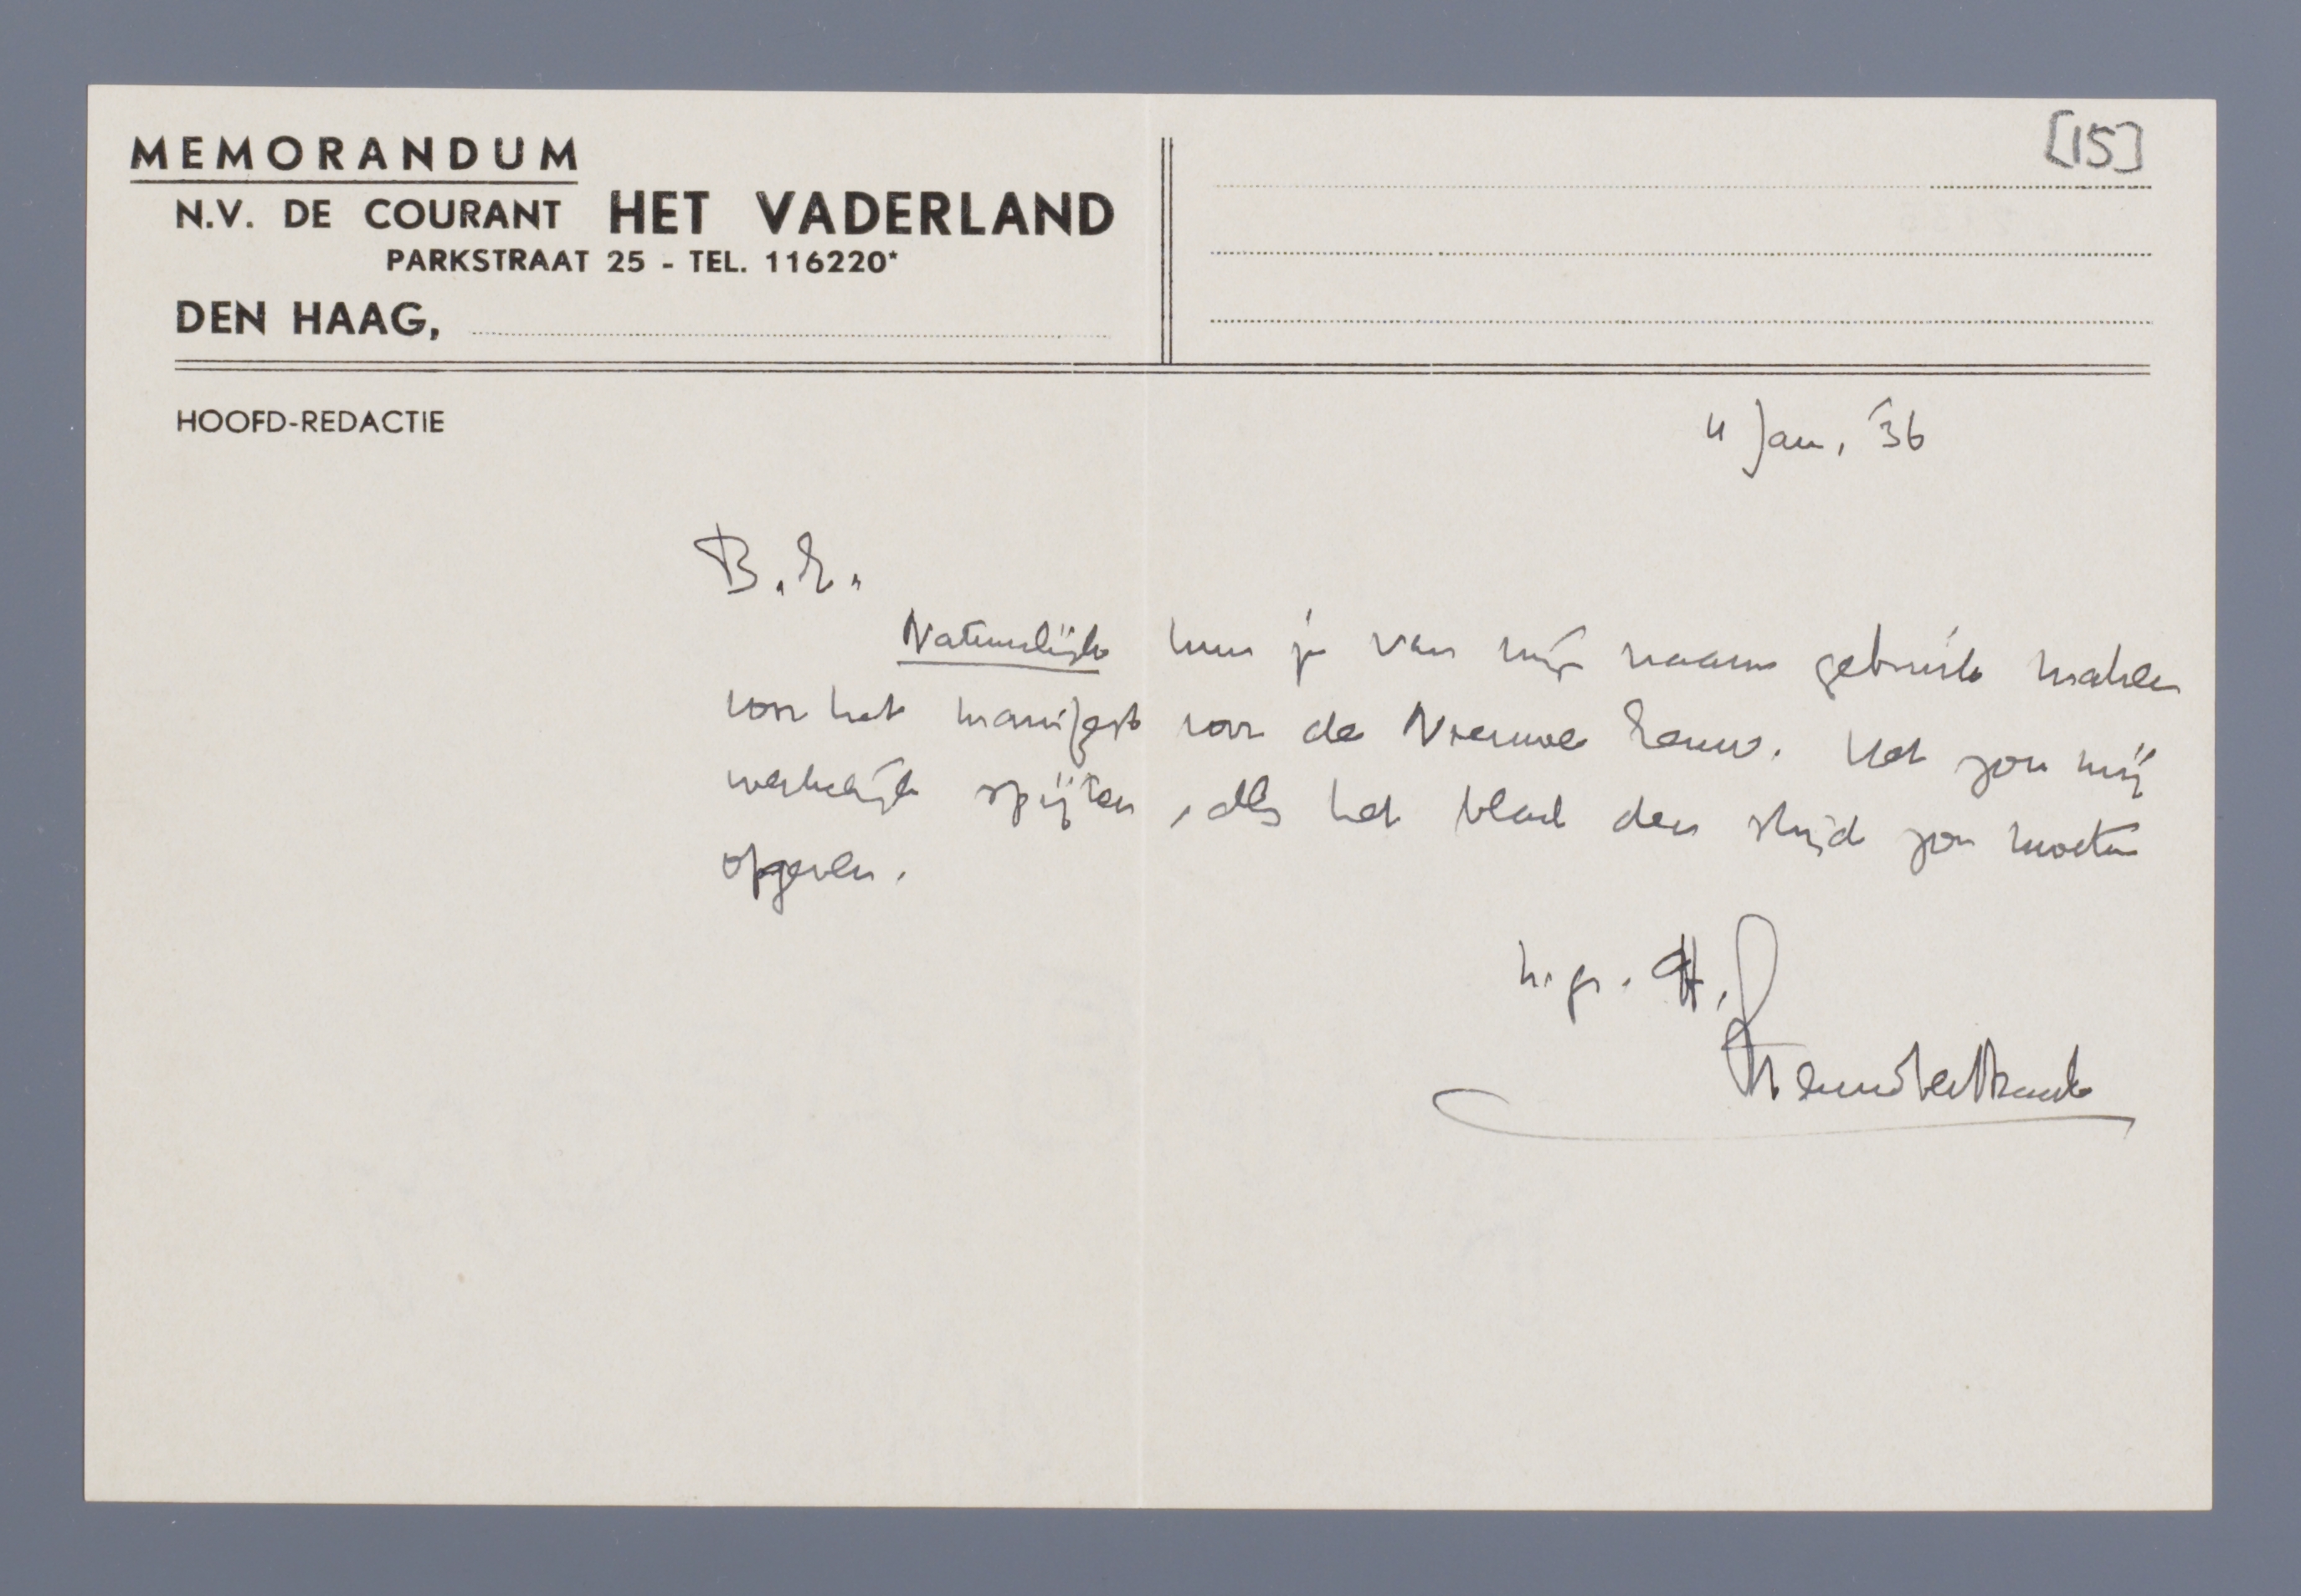 MEMORANDUM
N.V. DE COURANT HET VADERLAND
PARKSTRAAT 25 - TEL. 116220*
DEN HAAG,
[15]
HOOFD-REDACTIE
11 Jan, '36
B.E.
Natuurlijk kun je van mijn naam gebruik maken
voor het manifest voor de Nieuwe Eeuw. Het zou mij
werkelijk spijten, als het blad den strijd zou moeten
opgeven.
h.gr.